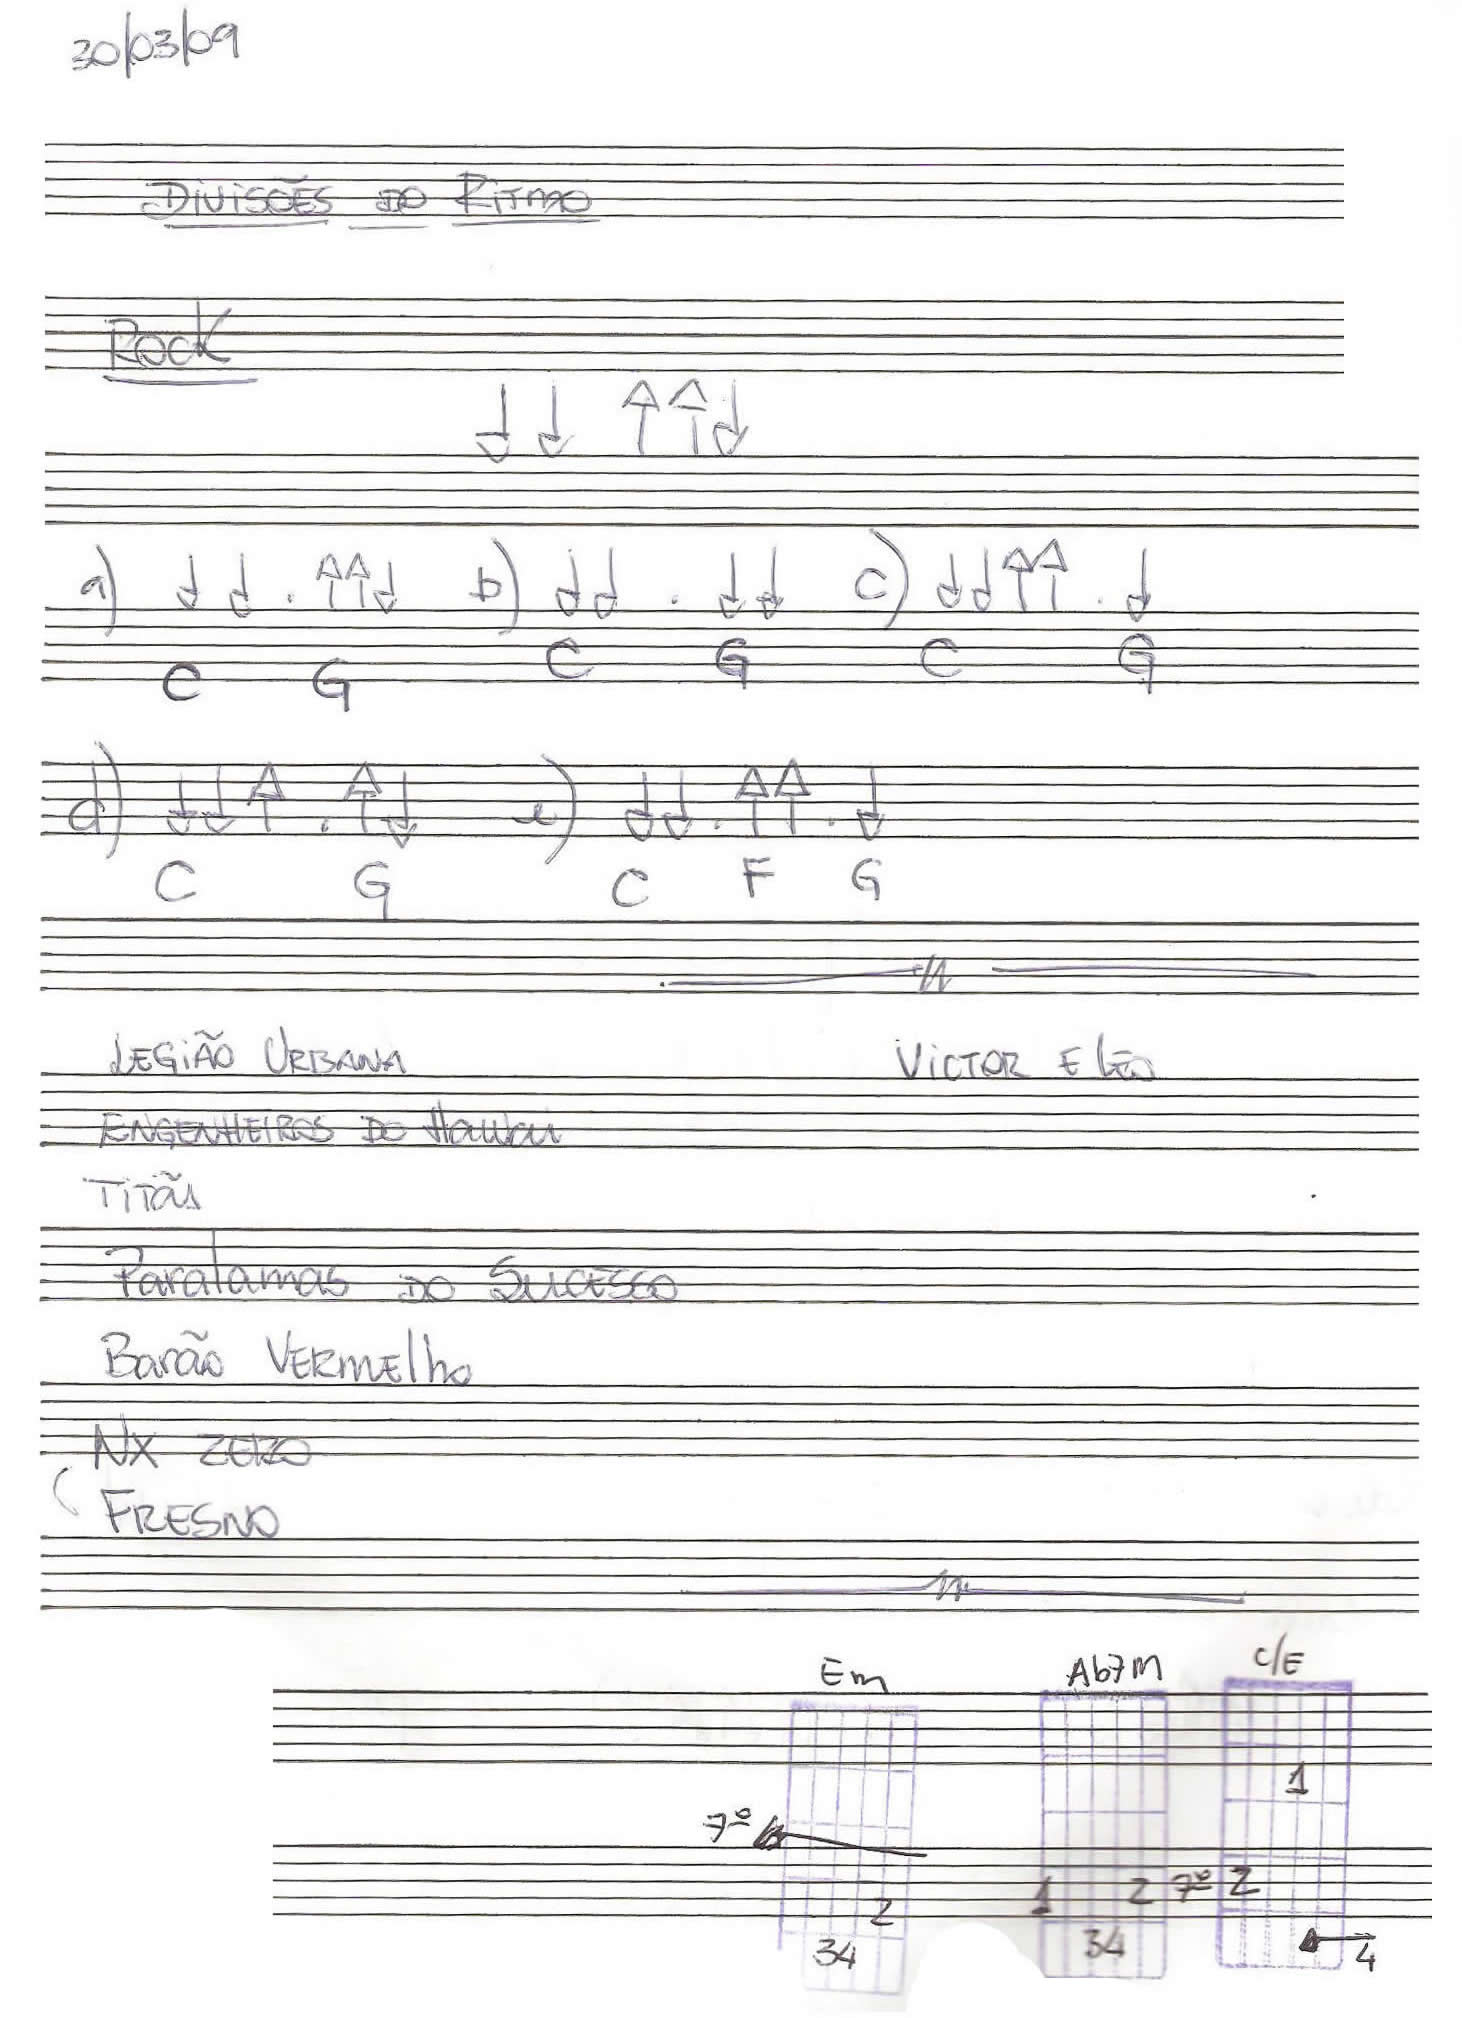 30/03/09
DIVISÕES DO RITMO
ROCK
↓ ↓ ↑ ↑ ↓
a) ↓ ↓ . ↑ ↑ ↓ b) ↓ ↓ . ↓ ↓ c) ↓ ↓ ↑ ↑ . ↓
C G C G C G
d) ↓ ↓ ↑ . ↑ ↓ e) ↓ ↓ . ↑ ↑ . ↓
C G C F G
LEGIÃO URBANA VICTOR E LEO
ENGENHEIROS DO HAWAI
TITÃS
Paralamas DO SUCESSO
Barão VERMElho
NX ZERO
FRESNO
Em Ab7M C/E
1
7º
1 2 7º 2
2
34 34 4